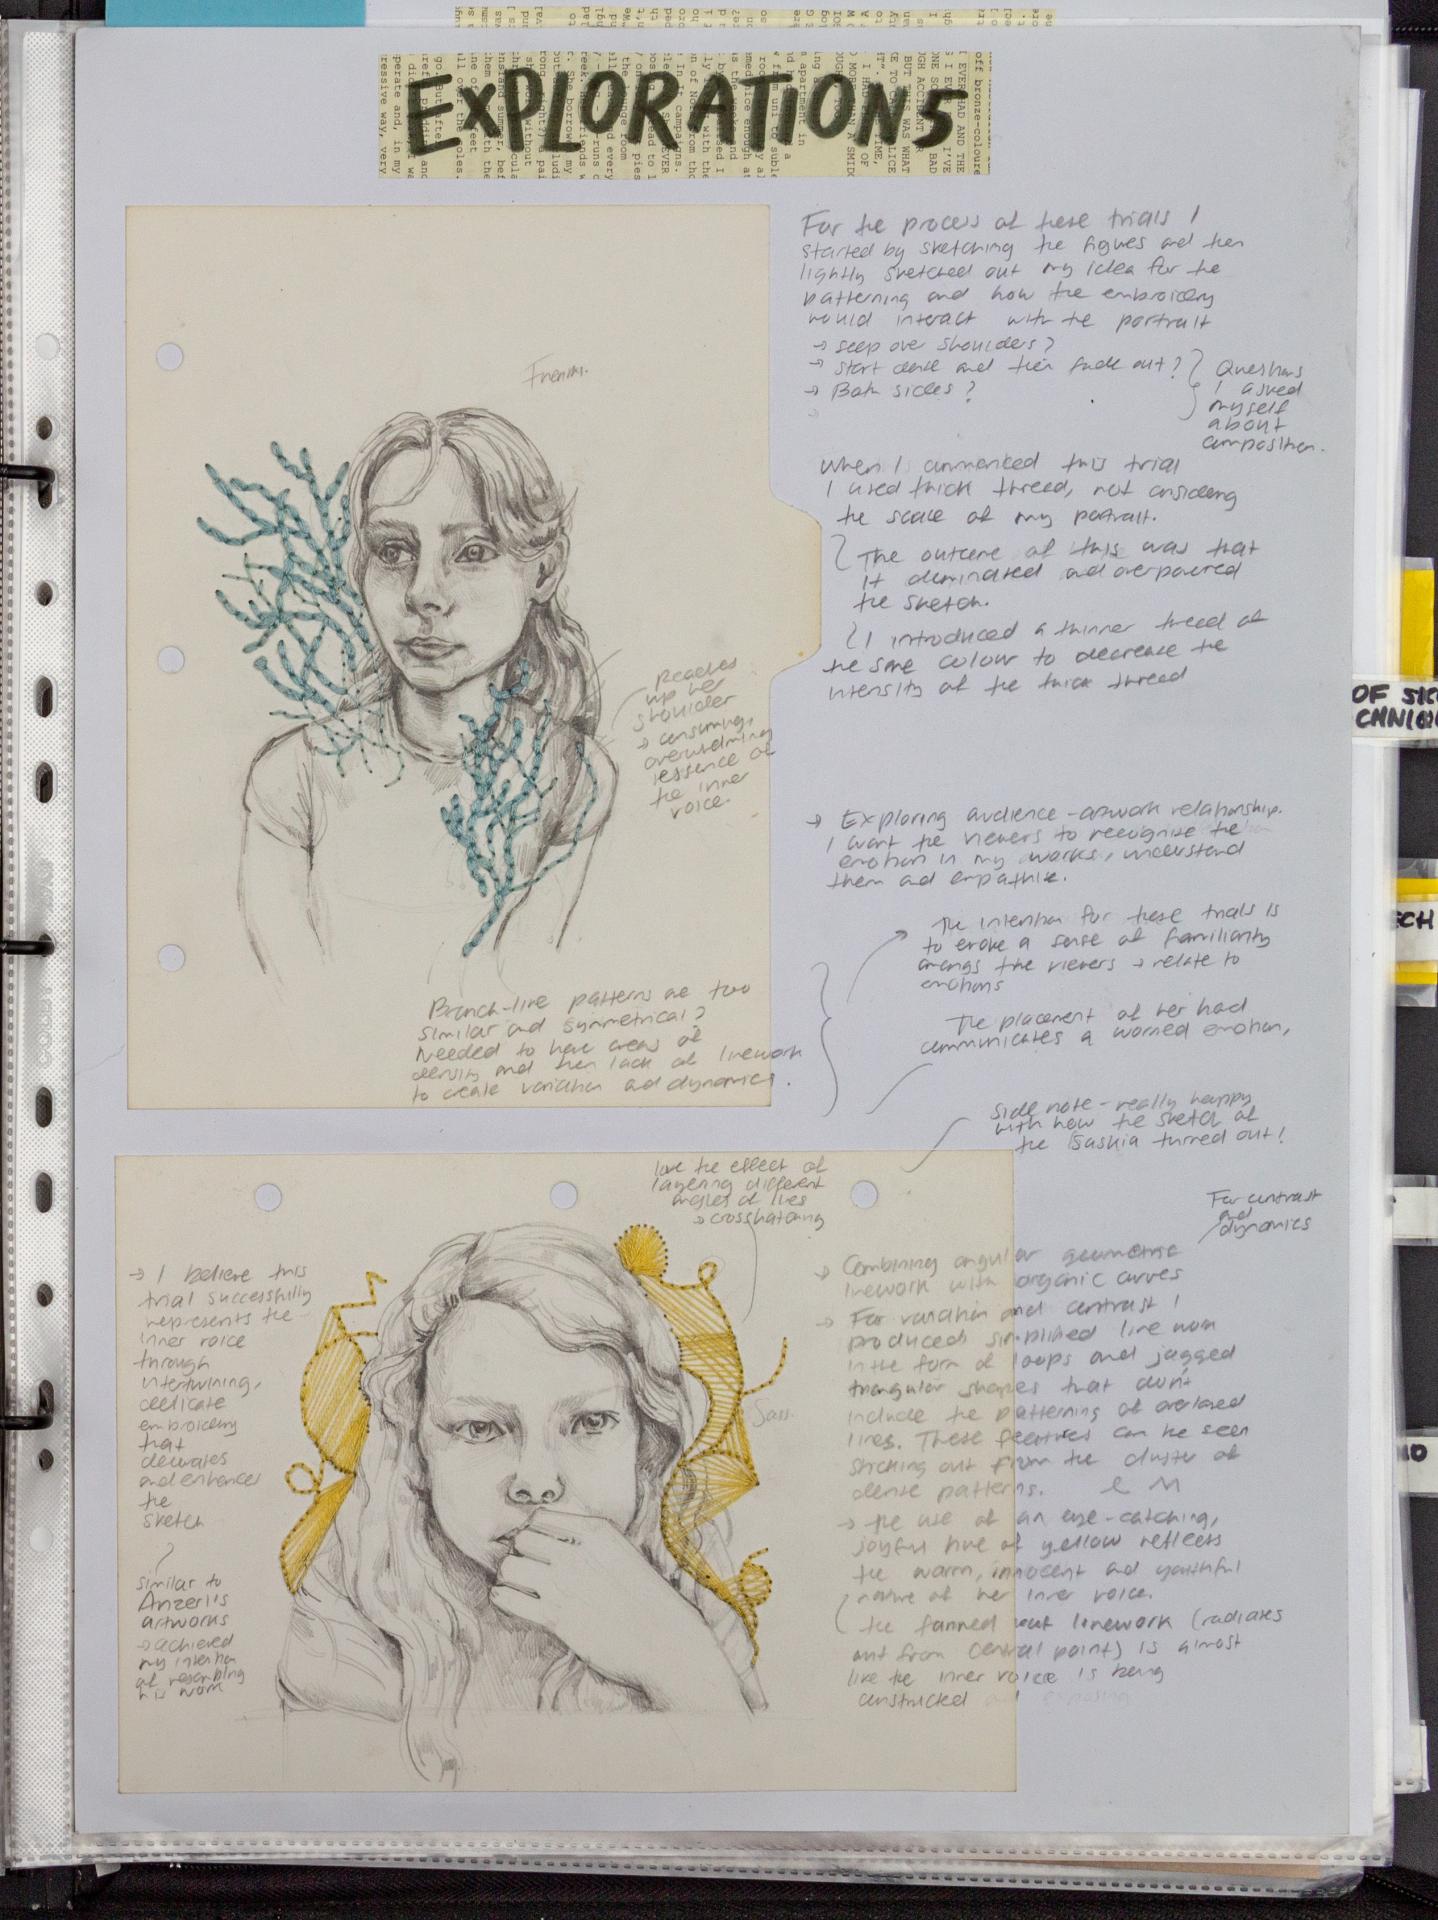 EXPLORATIONS
For the process of these trials I
started by sketching the figures and then
lightly sketched out my idea for the
patterning and how the embroidery
would interact with the portrait
→ seep over shoulders?
→ start dense and then fade out?
→ Both sides?
Questions
I asked
myself
about
composition.
When I commenced this trial
I used thick thread, not considering
the scale of my portrait.
The outcome of this was that
it dominated and overpowered
the sketch.
I introduced a thinner thread of
the same colour to decrease the
intensity of the thick thread
Reaches
up her
shoulder
→ consuming,
overwhelming
essence of
the inner
voice.
Branch-like patterns are too
similar and symmetrical?
Needed to have areas of
density and then lack of linework
to create variation and dynamics.
→ Exploring audience-artwork relationship.
I want the viewers to recognize the
emotion in my works, understand
them and empathise.
The intention for these trials is
to evoke a sense of familiarity
amongs the viewers → relate to
emotions
The placement of her hand
communicates a worried emotion,
Side note - really happy
with how the sketch of
the Saskia turned out!
love the effect of
layering different
angles of lines
→ crosshatching
→ I believe this
trial successfully
represents the
inner voice
through
intertwining,
delicate
embroidery
that
decorates
and enhances
the
sketch
similar to
Anzeri's
artworks
→ achieved
my intention
of resembling
his work
Sass.
For contrast
and
dynamics
→ Combining angular geometric
linework with organic curves
→ For variation and contrast I
produced simplified line work
in the form of loops and jagged
triangular shapes that don't
include the patterning of overlaped
lines. These features can be seen
sticking out from the cluster of
dense patterns.
→ the use of an eye-catching,
joyful hue of yellow reflects
the warm, innocent and youthful
nature of her inner voice.
the fanned out linework (radiates
out from central point) is almost
like the inner voice is being
constricted
OF SIC
ECH